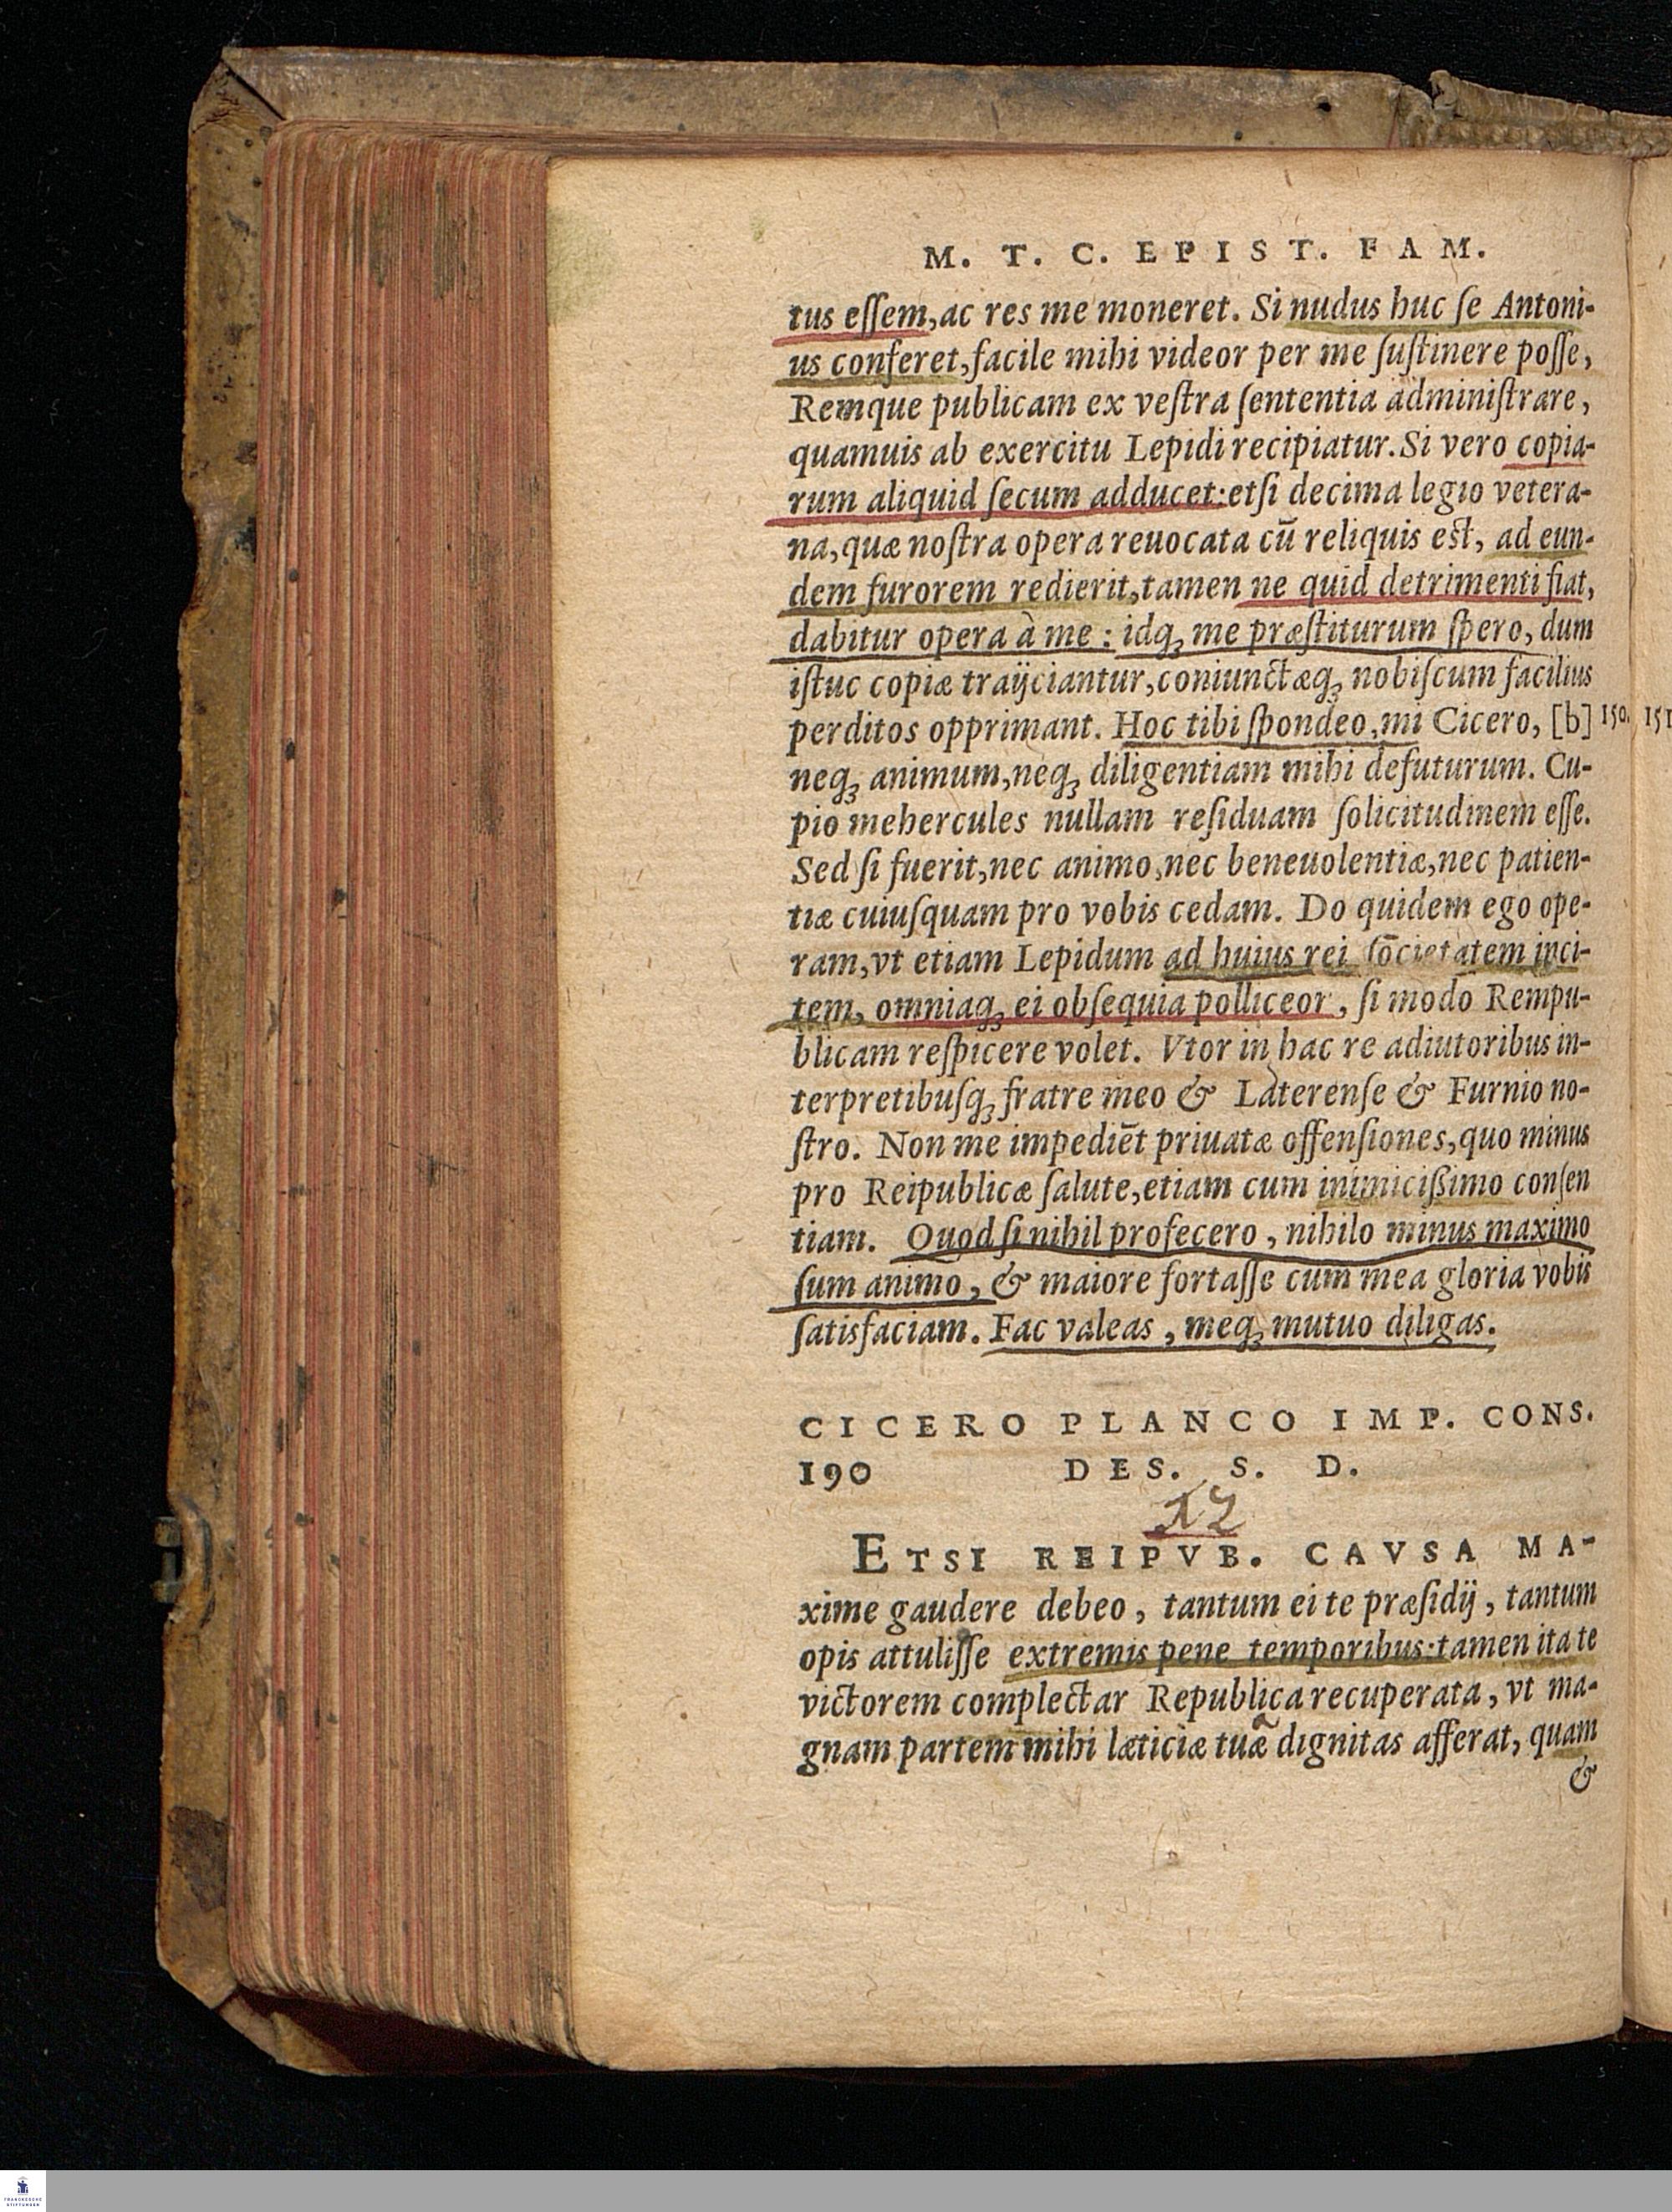 M. T. C. EPIST. FAM.
tus eſſem, ac res me moneret. Si nudus huc ſe Antoni-
us conferet, facile mihi videor per me ſuſtinere poſſe,
Remque publicam ex veſtra ſententia adminiſtrare,
quamuis ab exercitu Lepidi recipiatur. Si vero copia-
rum aliquid ſecum adducet: etſi decima legio vetera-
na, quæ noſtra opera reuocata cū reliquis eſt, ad eun-
dem furorem redierit, tamen ne quid detrimenti fiat,
dabitur opera à me: idq́; me præſtiturum ſpero, dum
iſtuc copiæ traijciantur, coniunctæq́; nobiſcum facilius
perditos opprimant. Hoc tibi ſpondeo, mi Cicero, [b] 150. 151
neq́; animum, neq́; diligentiam mihi defuturum. Cu-
pio mehercules nullam reſiduam ſolicitudinem eſſe.
Sed ſi fuerit, nec animo, nec beneuolentiæ, nec patien-
tiæ cuiuſquam pro vobis cedam. Do quidem ego ope-
ram, vt etiam Lepidum ad huius rei ſocietatem inci-
tem, omniaq́; ei obſequia polliceor, ſi modo Rempu-
blicam reſpicere volet. Vtor in hac re adiutoribus in-
terpretibuſq́; fratre meo & Laterenſe & Furnio no-
ſtro. Non me impediēt priuatæ offenſiones, quo minus
pro Reipublicæ ſalute, etiam cum inimicißimo conſen
tiam. Quod ſi nihil profecero, nihilo minus maximo
ſum animo, & maiore fortaſſe cum mea gloria vobis
ſatisfaciam. Fac valeas, meq́; mutuo diligas.
CICERO PLANCO IMP. CONS.
190 DES. S. D.
12
ETSI REIPVB. CAVSA MA-
xime gaudere debeo, tantum ei te præſidij, tantum
opis attuliſſe extremis pene temporibus: tamen ita te
victorem complectar Republica recuperata, vt ma-
gnam partem mihi læticiæ tuæ dignitas afferat, quam
&
FRANCKESCHE
STIFTUNGEN